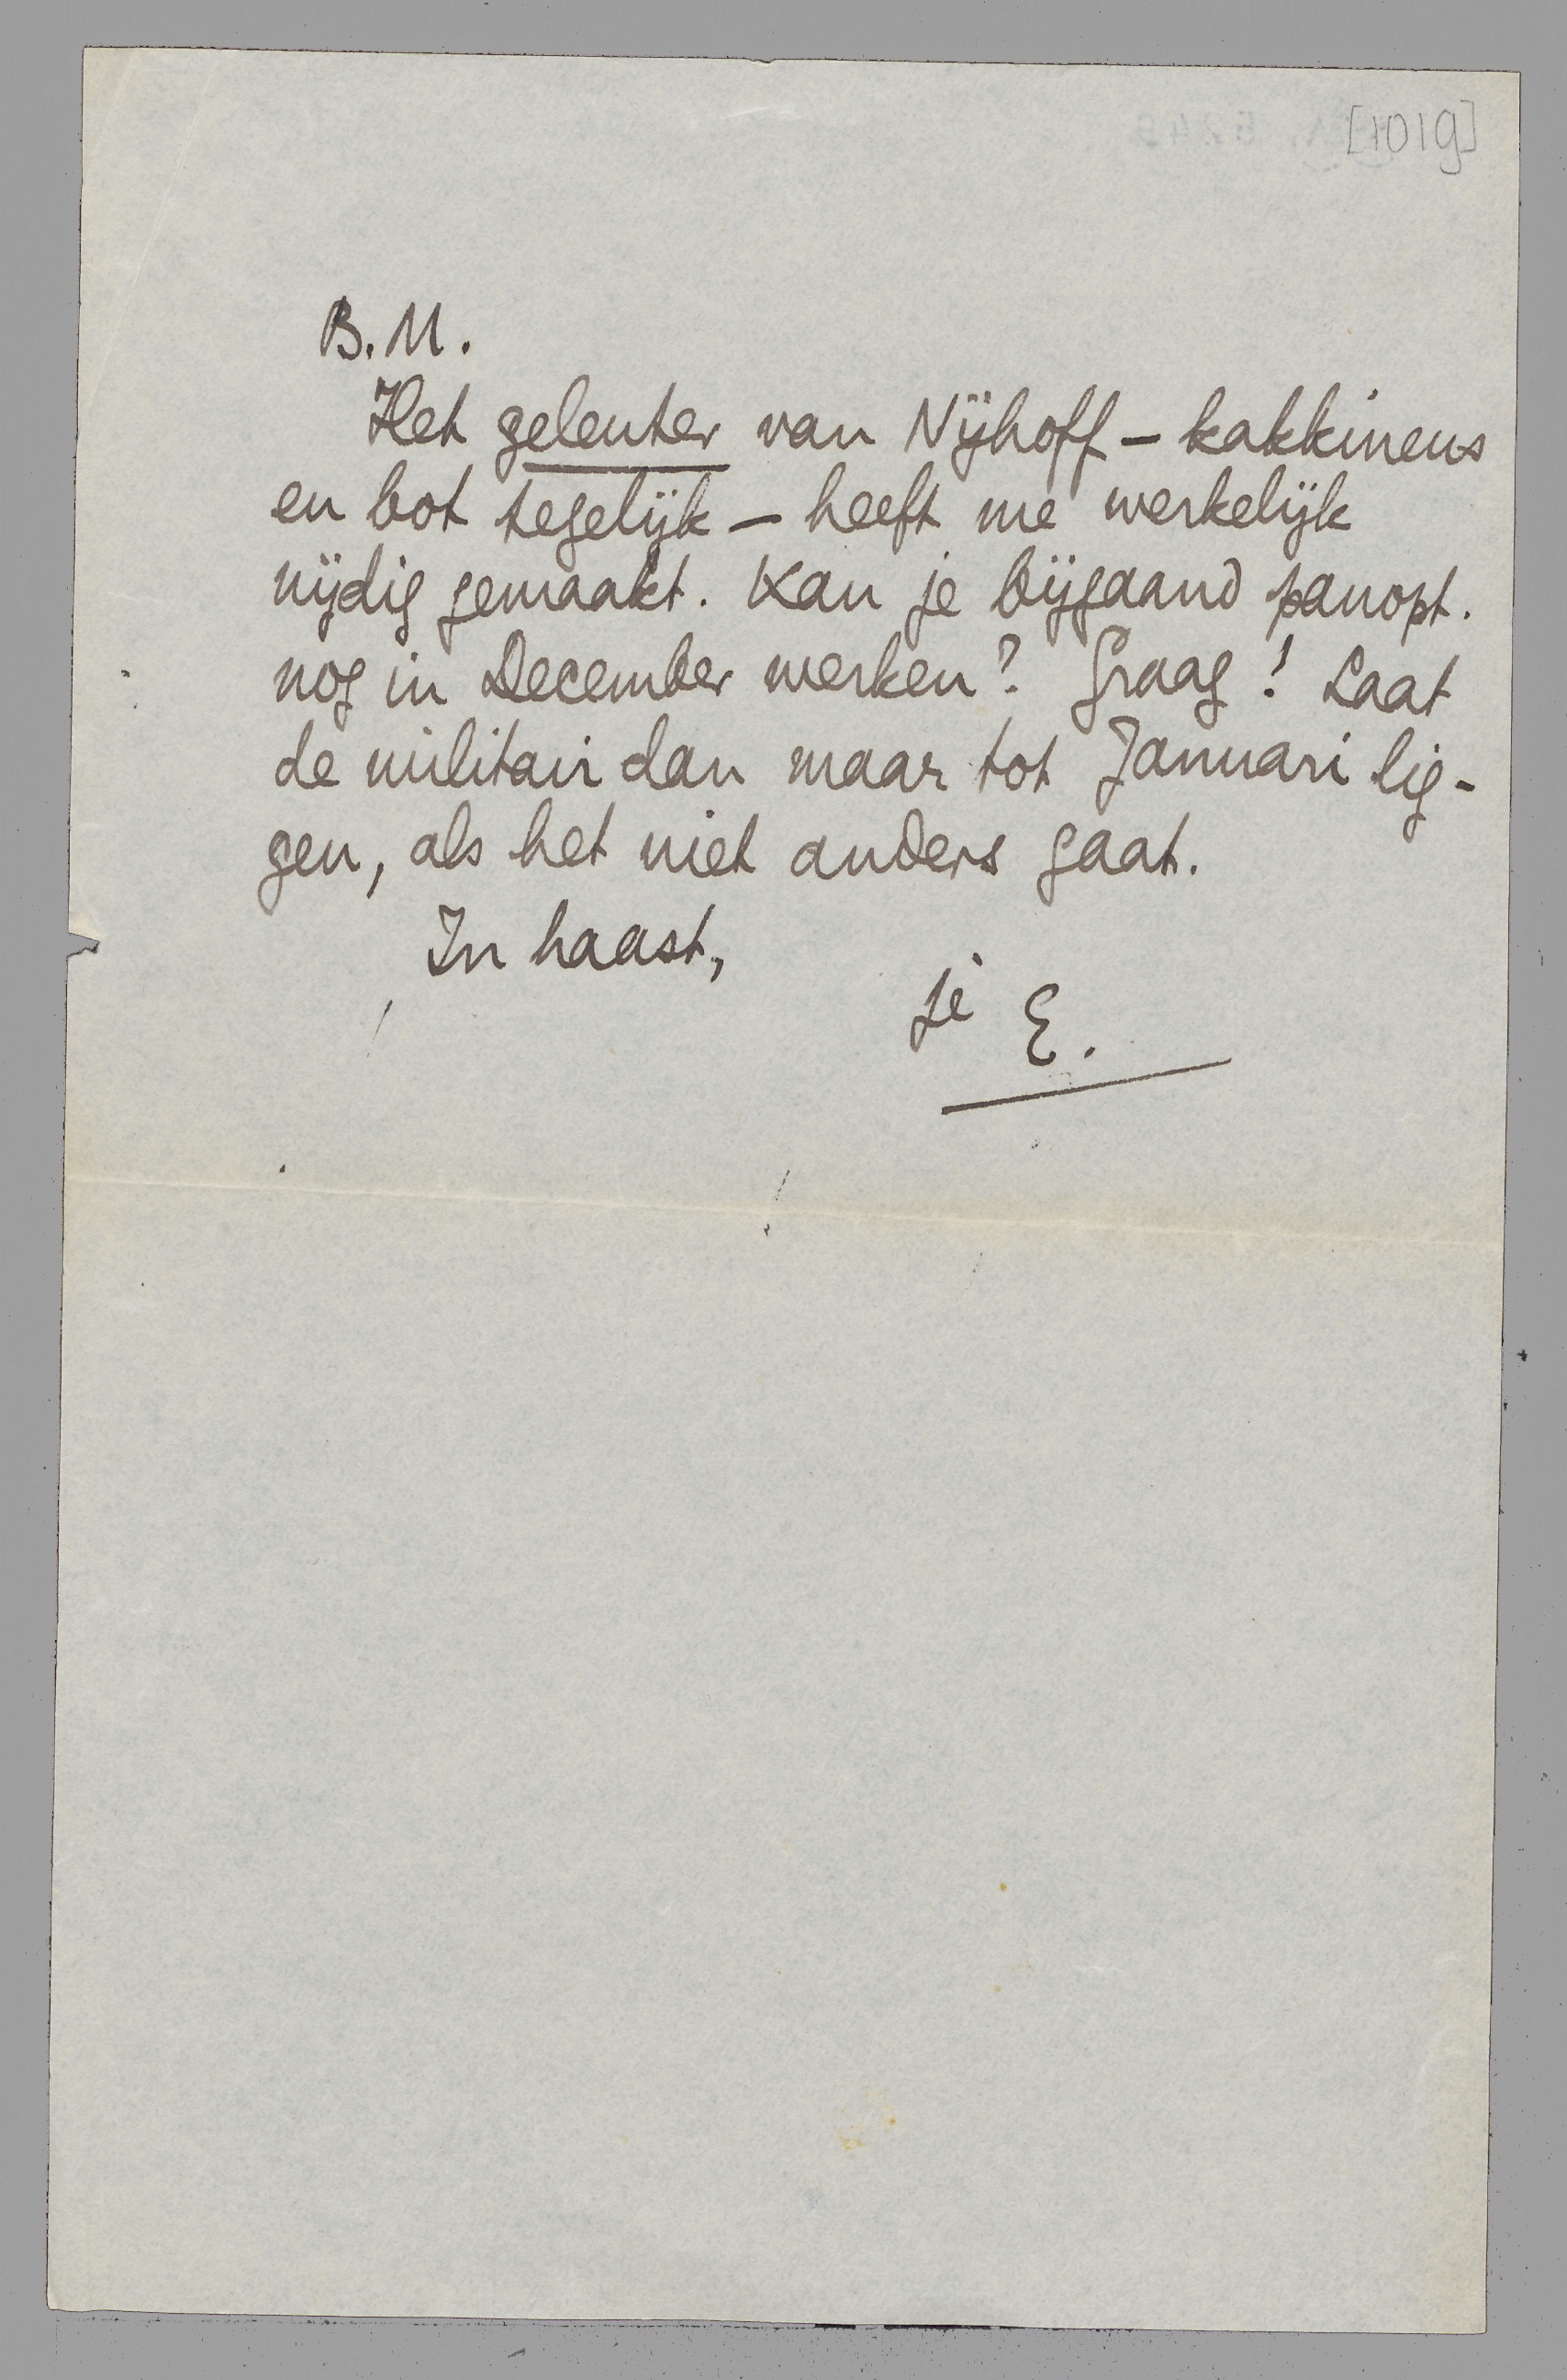 [1019]
B.M.
Het geleuter van Nijhoff – kakkineus
en bot tegelijk – heeft me werkelijk
nijdig gemaakt. Kan je bijgaand panopt.
nog in December werken? Graag! Laat
de militair dan maar tot Januari lig-
gen, als het niet anders gaat.
In haast,
je E.